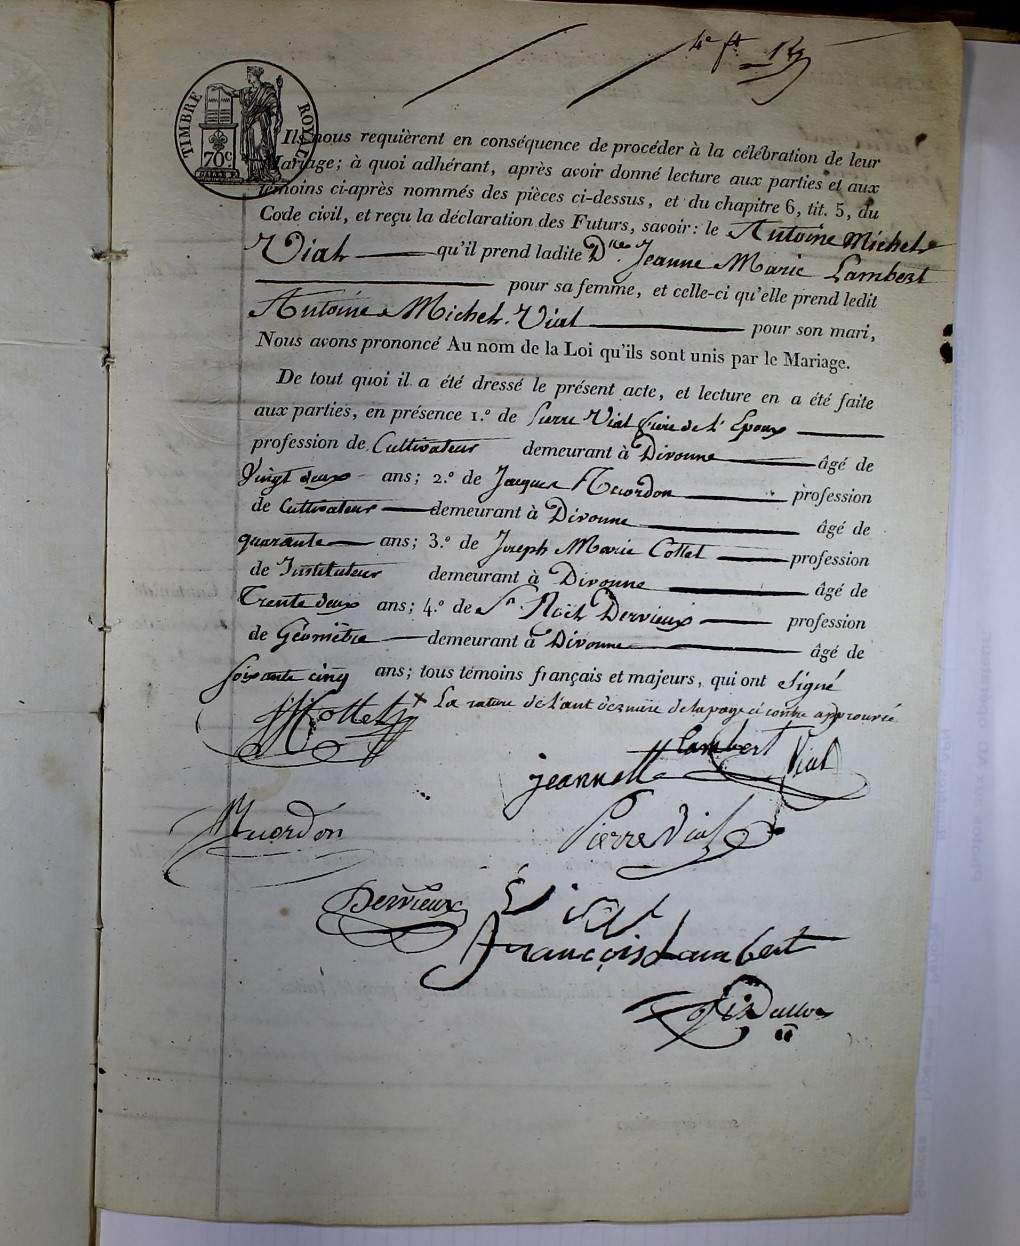 4e ft
TIMBRE ROYAL
70c
Ils nous requièrent en conséquence de procéder à la célébration de leur
Mariage; à quoi adhérant, après avoir donné lecture aux parties et aux
témoins ci-après nommés des pièces ci-dessus, et du chapitre 6, tit. 5, du
Code civil, et reçu la déclaration des Futurs, savoir: le Antoine Michel
Vial qu'il prend ladite Dlle Jeanne Marie Lambert
pour sa femme, et celle-ci qu'elle prend ledit
Antoine Michel Vial pour son mari,
Nous avons prononcé Au nom de la Loi qu'ils sont unis par le Mariage.
De tout quoi il a été dressé le présent acte, et lecture en a été faite
aux parties, en présence 1.º de Pierre Vial frère de l'Epoux
profession de Cultivateur demeurant à Divonne âgé de
Vingt deux ans; 2.º de Jacques profession
de Cultivateur demeurant à Divonne âgé de
quarante ans; 3.º de Joseph Marie Cottet profession
de Instituteur demeurant à Divonne âgé de
Trente deux ans; 4.º de Sr Noël Dervieux profession
de Géomètre demeurant à Divonne âgé de
soixante cinq ans; tous témoins français et majeurs, qui ont signé
x La rature de l'avt dernière de la page ci contre approuvée
Cottet
jeannette Lambert Vial
Pierre Vial
Dervieux
Vial
François Lambert